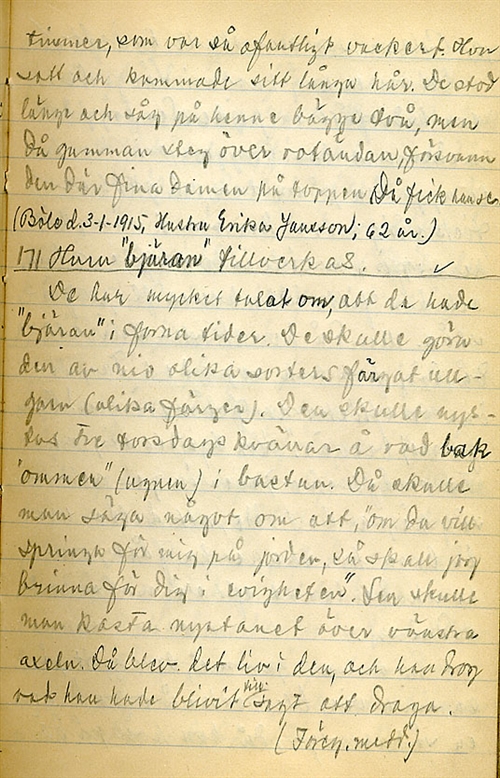 timmer, som var så ofantligt vackert. Hon
satt och kammade sitt långa hår. De stod
länge och såg på henne bägge två, men
då gumman steg över rotändan, försvann
den där fina damen på toppen. Då fick han se
(Böle d. 3-1-1915, Hustru Erika Jansson, 62 år.)
171 Huru "bjäran" tillverkas. ✓
De har mycket talat om, att de hade
"bjäran" i forna tider. De skulle göra
den av nio olika sorters färgat ull-
garn (olika färger). Den skulle nys-
tas tre torsdagskvällar å rad bak
"ommen" (ugnen) i bastun. Då skulle
man säga något om att, "om du vill
springa för mig på jorden, så skall jag
brinna för dig i evigheten". Sen skulle
man kasta nystanet över vänstra
axeln. Då blev det liv i den, och han drog
vad han hade blivit till-sagt att draga.
(Föreg. medd.)